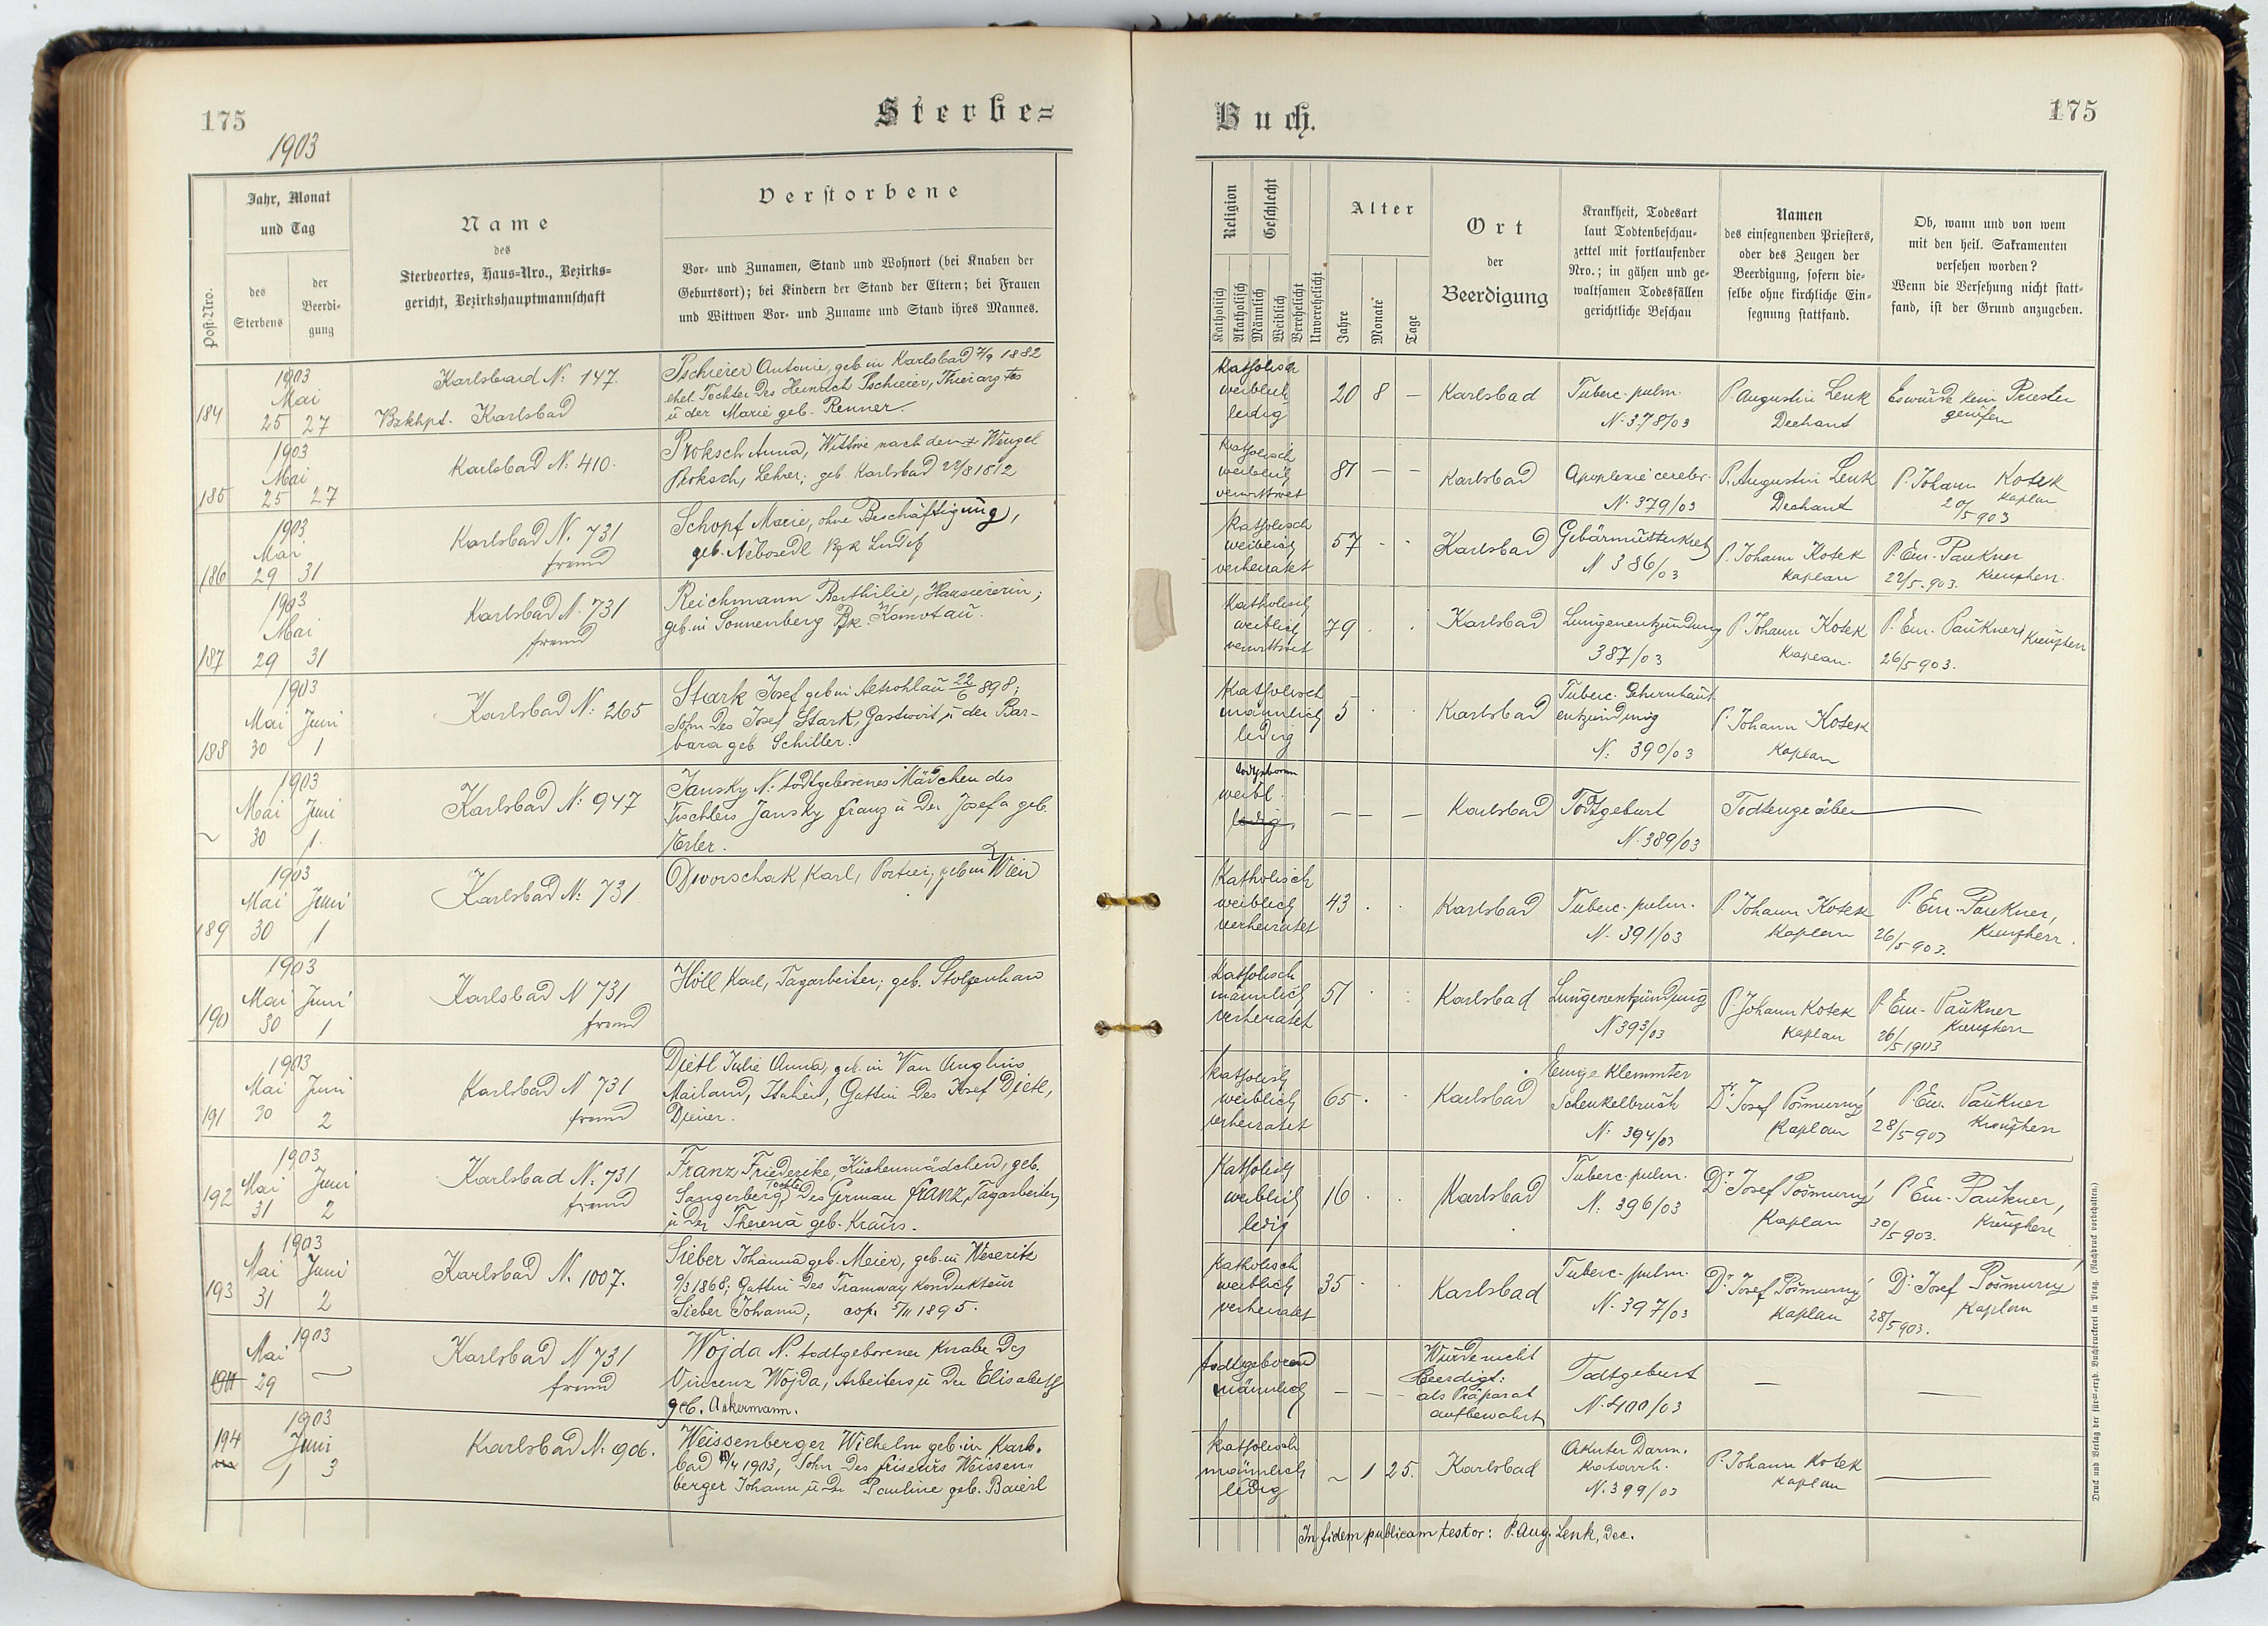 175
1903
Sterbe=
Post-Nro.
Jahr, Monat
und Tag
des
Sterbens
der
Beerdi-
gung
Name
des
Sterbeortes, Haus-Nro., Bezirks=
gericht, Bezirkshauptmannschaft
Verstorbene
Vor- und Zunamen, Stand und Wohnort (bei Knaben der
Geburtsort); bei Kindern der Stand der Eltern; bei Frauen
und Wittwen Vor- und Zuname und Stand ihres Mannes.
184
1903
Mai
25 27
Karlsbad N: 147.
Bzkhpt. Karlsbad
Pschierer Antonie, geb in Karlsbad 7/9 1882
ehel. Tochter des Heinrich Pschierer,
u der Marie geb. Renner.
185
1903
Mai
25 27
Karlsbad N: 410.
Proksch Anna, Wittwe nach dem Wenzel
Proksch, Lehrer; geb. Karlsbad 22/8 1812
186
1903
Mai
29 31
Karlsbad N. 731
fremd
Schopf Marie, ohne Beschäftigung,
geb. Nebosedl
187
1903
Mai
29 31
Karlsbad N. 731
fremd
Reichmann Berthilie, Hausiererin;
geb. in Sonnenberg Bzk. Komotau.
188
1903
Mai Juni
30 1
Karlsbad N: 265
Stark Josef geb in Altrohlau 22/6 898;
Sohn des Josef Stark, Gastwirt, u der Bar-
bara geb. Schiller.
1903
Mai Juni
~ 30 1.
Karlsbad N: 947
Jansky N: todtgeborenes Mädchen des
Tischlers Jansky Franz u der Josefa geb.
Erler.
189
1903
Mai Juni
30 1
Karlsbad N: 731
Dworschak Karl, Portier, geb in Wien
190
1903
Mai Juni
30 1
Karlsbad N 731
fremd
Höll Karl, Tagarbeiter; geb. Stolzenhan
191
1903
Mai Juni
30 2
Karlsbad N 731
fremd
Dietl Julie Anna, geb. in Van
Mailand, Italien, Gattin des Josef Dietl,
Diener.
192
1903
Mai Juni
31 2
Karlsbad N. 731
fremd
Franz Friederike, Küchenmädchen, geb.
Sangerberg, Tochter des German Franz, Tagarbeiter,
u der Theresia geb. Kraus.
193
1903
Mai Juni
31 2
Karlsbad N. 1007.
Sieber Johanna geb. Meier, geb. in Weseritz
9/3 1868; Gattin des Tramway Kondukteur
Sieber Johann; cop. 5/11 1895.
1903
Mai
194 29 ~
Karlsbad N 731
fremd
Wojda N. todtgeborener Knabe des
Vincenz Wojda, Arbeiters u der Elisabeth
geb. Ackermann.
1903
194 Juni
1 3
Karlsbad N: 906.
Weissenberger Wilhelm geb. in Karls-
bad /4 1903, Sohn des Friseurs Weissen-
berger Johann u der Pauline geb. Baierl
Buch.
175
Religion
Geschlecht
Katholisch
Akatholisch
Männlich
Weiblich
Verehelicht
Unverehelicht
Alter
Jahre
Monate
Tage
Ort
der
Beerdigung
Krankheit, Todesart
laut Todtenbeschau-
zettel mit fortlaufender
Nro.; in gähen und ge-
waltsamen Todesfällen
gerichtliche Beschau
Namen
des einsegnenden Priesters,
oder des Zeugen der
Beerdigung, sofern die-
selbe ohne kirchliche Ein-
segnung stattfand.
Ob, wann und von wem
mit den heil. Sakramenten
versehen worden?
Wenn die Versehung nicht statt-
fand, ist der Grund anzugeben.
Katholisch
weiblich
ledig
20 8 —
Karlsbad
Tuberc. pulm.
N. 378/03
P. Augustin Lenk
Dechant
Es wurde kein Priester
gerufen
Katholisch
weiblich
verwittwet
81 — —
Karlsbad
Apoplexie cerebr.
N. 379/03
P. Augustin Lenk
Dechant
P. Johann Kotek
Kaplan
20/5 903
Katholisch
weiblich
verheiratet
57 . .
Karlsbad
Gebärmutterkrebs
N 386/03
P. Johann Kotek
Kaplan
P. Em. Paukner
22/5. 903. Kreuzherr.
Katholisch
weiblich
verwittwet
79 . .
Karlsbad
Lungenentzündung
387/03
P. Johann Kotek
Kaplan.
P. Em. Paukner Kreuzherr
26/5 903.
Katholisch
männlich
ledig
5 . .
Karlsbad
Tuberc. Gehirnhaut
entzündung
N: 390/03
P. Johann Kotek
Kaplan
todtgeboren
weibl.
ledig
— — —
Karlsbad
Todtgeburt
N. 389/03
Todtengräber —
Katholisch
weiblich
verheiratet
43 . .
Karlsbad
Tuberc. pulm.
N. 391/03
P. Johann Kotek
Kaplan
P. Em. Paukner,
26/5 903. Kreuzherr.
Katholisch
männlich
verheiratet
51 . :
Karlsbad
Lungenentzündung
N 393/03
P. Johann Kotek
Kaplan
P. Em. Paukner
Kreuzherr
26/5 1903
Katholisch
weiblich
verheiratet
65 . .
Karlsbad
klemmter
Schenkelbruch
N: 394/03
Dr. Josef Pošmurný
Kaplan
P. Em. Paukner
28/5 903 Kreuzherr
Katholisch
weiblich
ledig
16 . .
Karlsbad
Tuberc. pulm.
N: 396/03
Dr. Josef Pošmurný
Kaplan
P. Em. Paukner,
30/5 903. Kreuzherr
Katholisch
weiblich
verheiratet
35 . .
Karlsbad
Tuberc. pulm.
N. 397/03
Dr. Josef Pošmurný
Kaplan
Dr. Josef Pošmurný
Kaplan
28/5 903.
todtgeboren
männlich
— — —
Wurde nicht
beerdigt:
als Präparat
aufbewahrt
Todtgeburt
N. 400/03
— —
Katholisch
männlich
ledig
~ 1 25.
Karlsbad
Akuter Darm.
katarrh.
N. 399/03
P. Johann Kotek
Kaplan
—
In fidem publicam testor: P. Aug. Lenk, Dec.
Druck und Verlag der fürst-erzb. Buchdruckerei in Prag. (Nachdruck vorbehalten.)